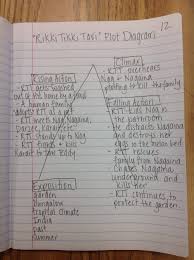 12
"Rikki Tikki Tavi" Plot Diagram
Rising Action
- RTT gets washed
out of his home by a flood
- A human family
adopts RTT as a pet
- RTT meets Nag, Nagaina,
Darzee, Karait
- RTT stands up to Nag
- RTT finds + kills
Karait to save Teddy
Exposition
Garden
Bungalow
Tropical Climate
India
past
Summer
Climax
- RTT overhears
Nag + Nagaina
plotting to kill the family
Falling Action
- RTT kills Nag in
the bathroom
- He distracts Nagaina
and destroys her
eggs in melon bed
- RTT rescues
family from Nagaina
- Chases Nagaina
underground and
kills her
- RTT continues to
protect the garden.